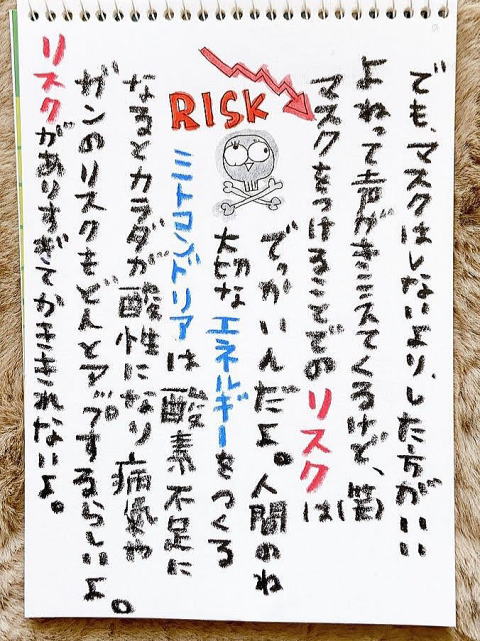 でも、マスクはしないより、した方がいい
よねって声がきこえてくるけど、(笑)
マスクをつけることでのリスクは
でっかいんだよ。人間のね
RISK
大切なエネルギーをつくる
ミトコンドリアは酸素不足に
なるとカラダが酸性になり病気や
ガンのリスクもどんとアップするらしいよ。
リスクがありすぎてかききれないよ。